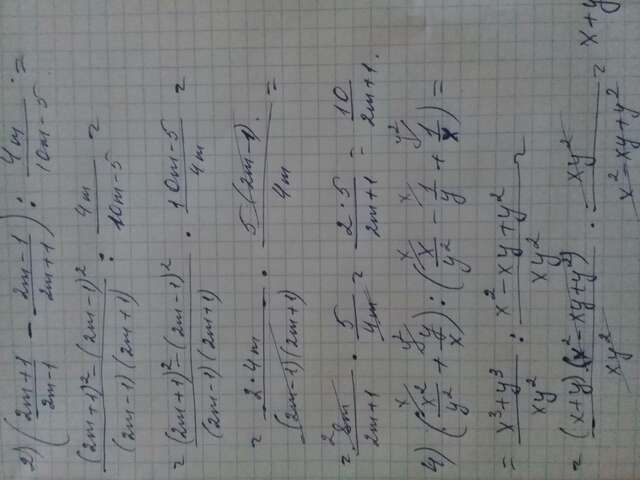 2) ((2m+1)/(2m-1) - (2m-1)/(2m+1)) : 4m/(10m-5) =
((2m+1)² - (2m-1)²)/((2m-1)(2m+1)) : 4m/(10m-5) =
= ((2m+1)² - (2m-1)²)/((2m-1)(2m+1)) · (10m-5)/4m =
= 2·4m/((2m-1)(2m+1)) · 5(2m-1)/4m =
= 8m/(2m+1) · 5/4m = 2·5/(2m+1) = 10/(2m+1).
4) (x²/y² + y/x) : (x/y² - 1/y + 1/x) =
= (x³+y³)/xy² : (x²-xy+y²)/xy² =
= (x+y)(x²-xy+y²)/xy² · xy²/(x²-xy+y²) = x+y